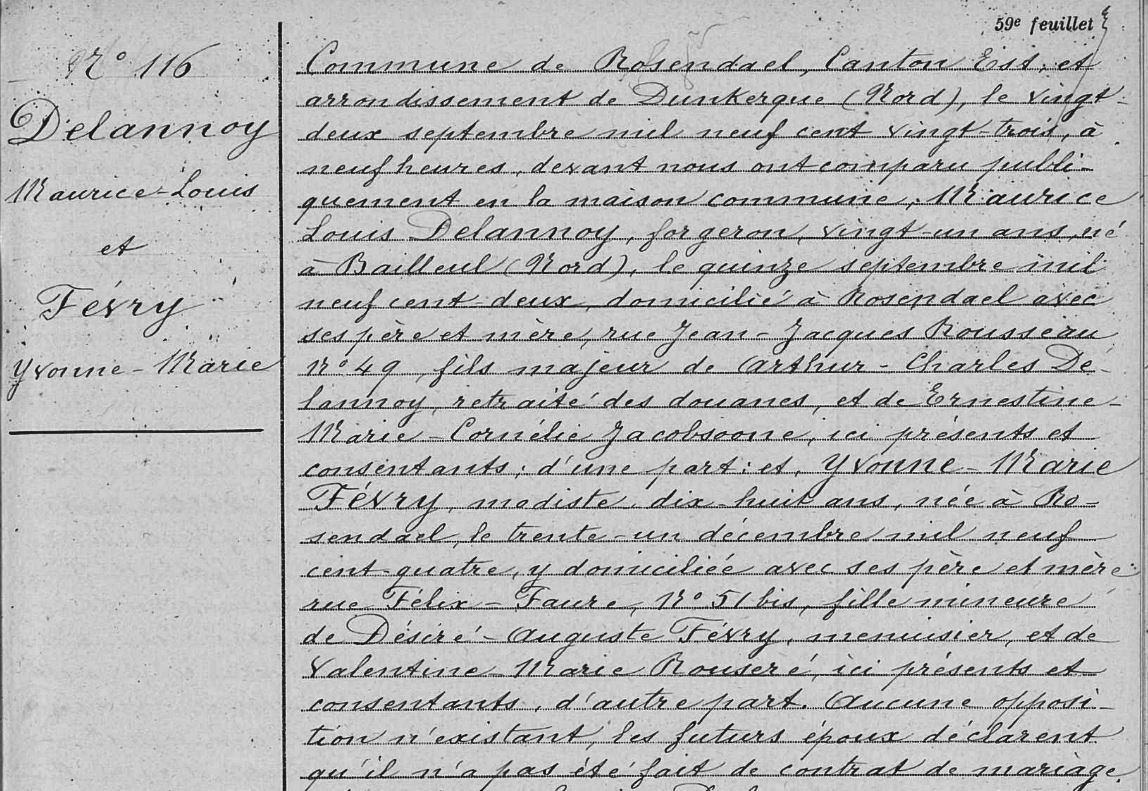 59e feuillet
N° 116
Delannoy
Maurice-Louis
et
Févry
Yvonne-Marie
Commune de Rosendael, Canton Est, et
arrondissement de Dunkerque (Nord), le vingt-
deux septembre mil neuf cent vingt-trois, à
neuf heures, devant nous ont comparu publi-
quement en la maison commune, Maurice
Louis Delannoy, forgeron, vingt-un ans, né
à Bailleul (Nord), le quinze septembre mil
neuf cent deux, domicilié à Rosendael avec
ses père et mère, rue Jean-Jacques Rousseau
N° 49, fils majeur de Arthur-Charles De-
lannoy, retraité des douanes, et de Ernestine-
Marie-Cornélie Jacobsoone, ici présents et
consentants; d'une part; et, Yvonne-Marie
Févry, modiste, dix-huit ans, née à Ro-
sendael, le trente-un décembre mil neuf
cent-quatre, y domiciliée avec ses père et mère
rue Félix-Faure, N° 51 bis, fille mineure
de Désiré-Auguste Févry, menuisier, et de
Valentine-Marie Rouseré, ici présents et
consentants, d'autre part. Aucune opposi-
tion n'existant, les futurs époux déclarent
qu'il n'a pas été fait de contrat de mariage.